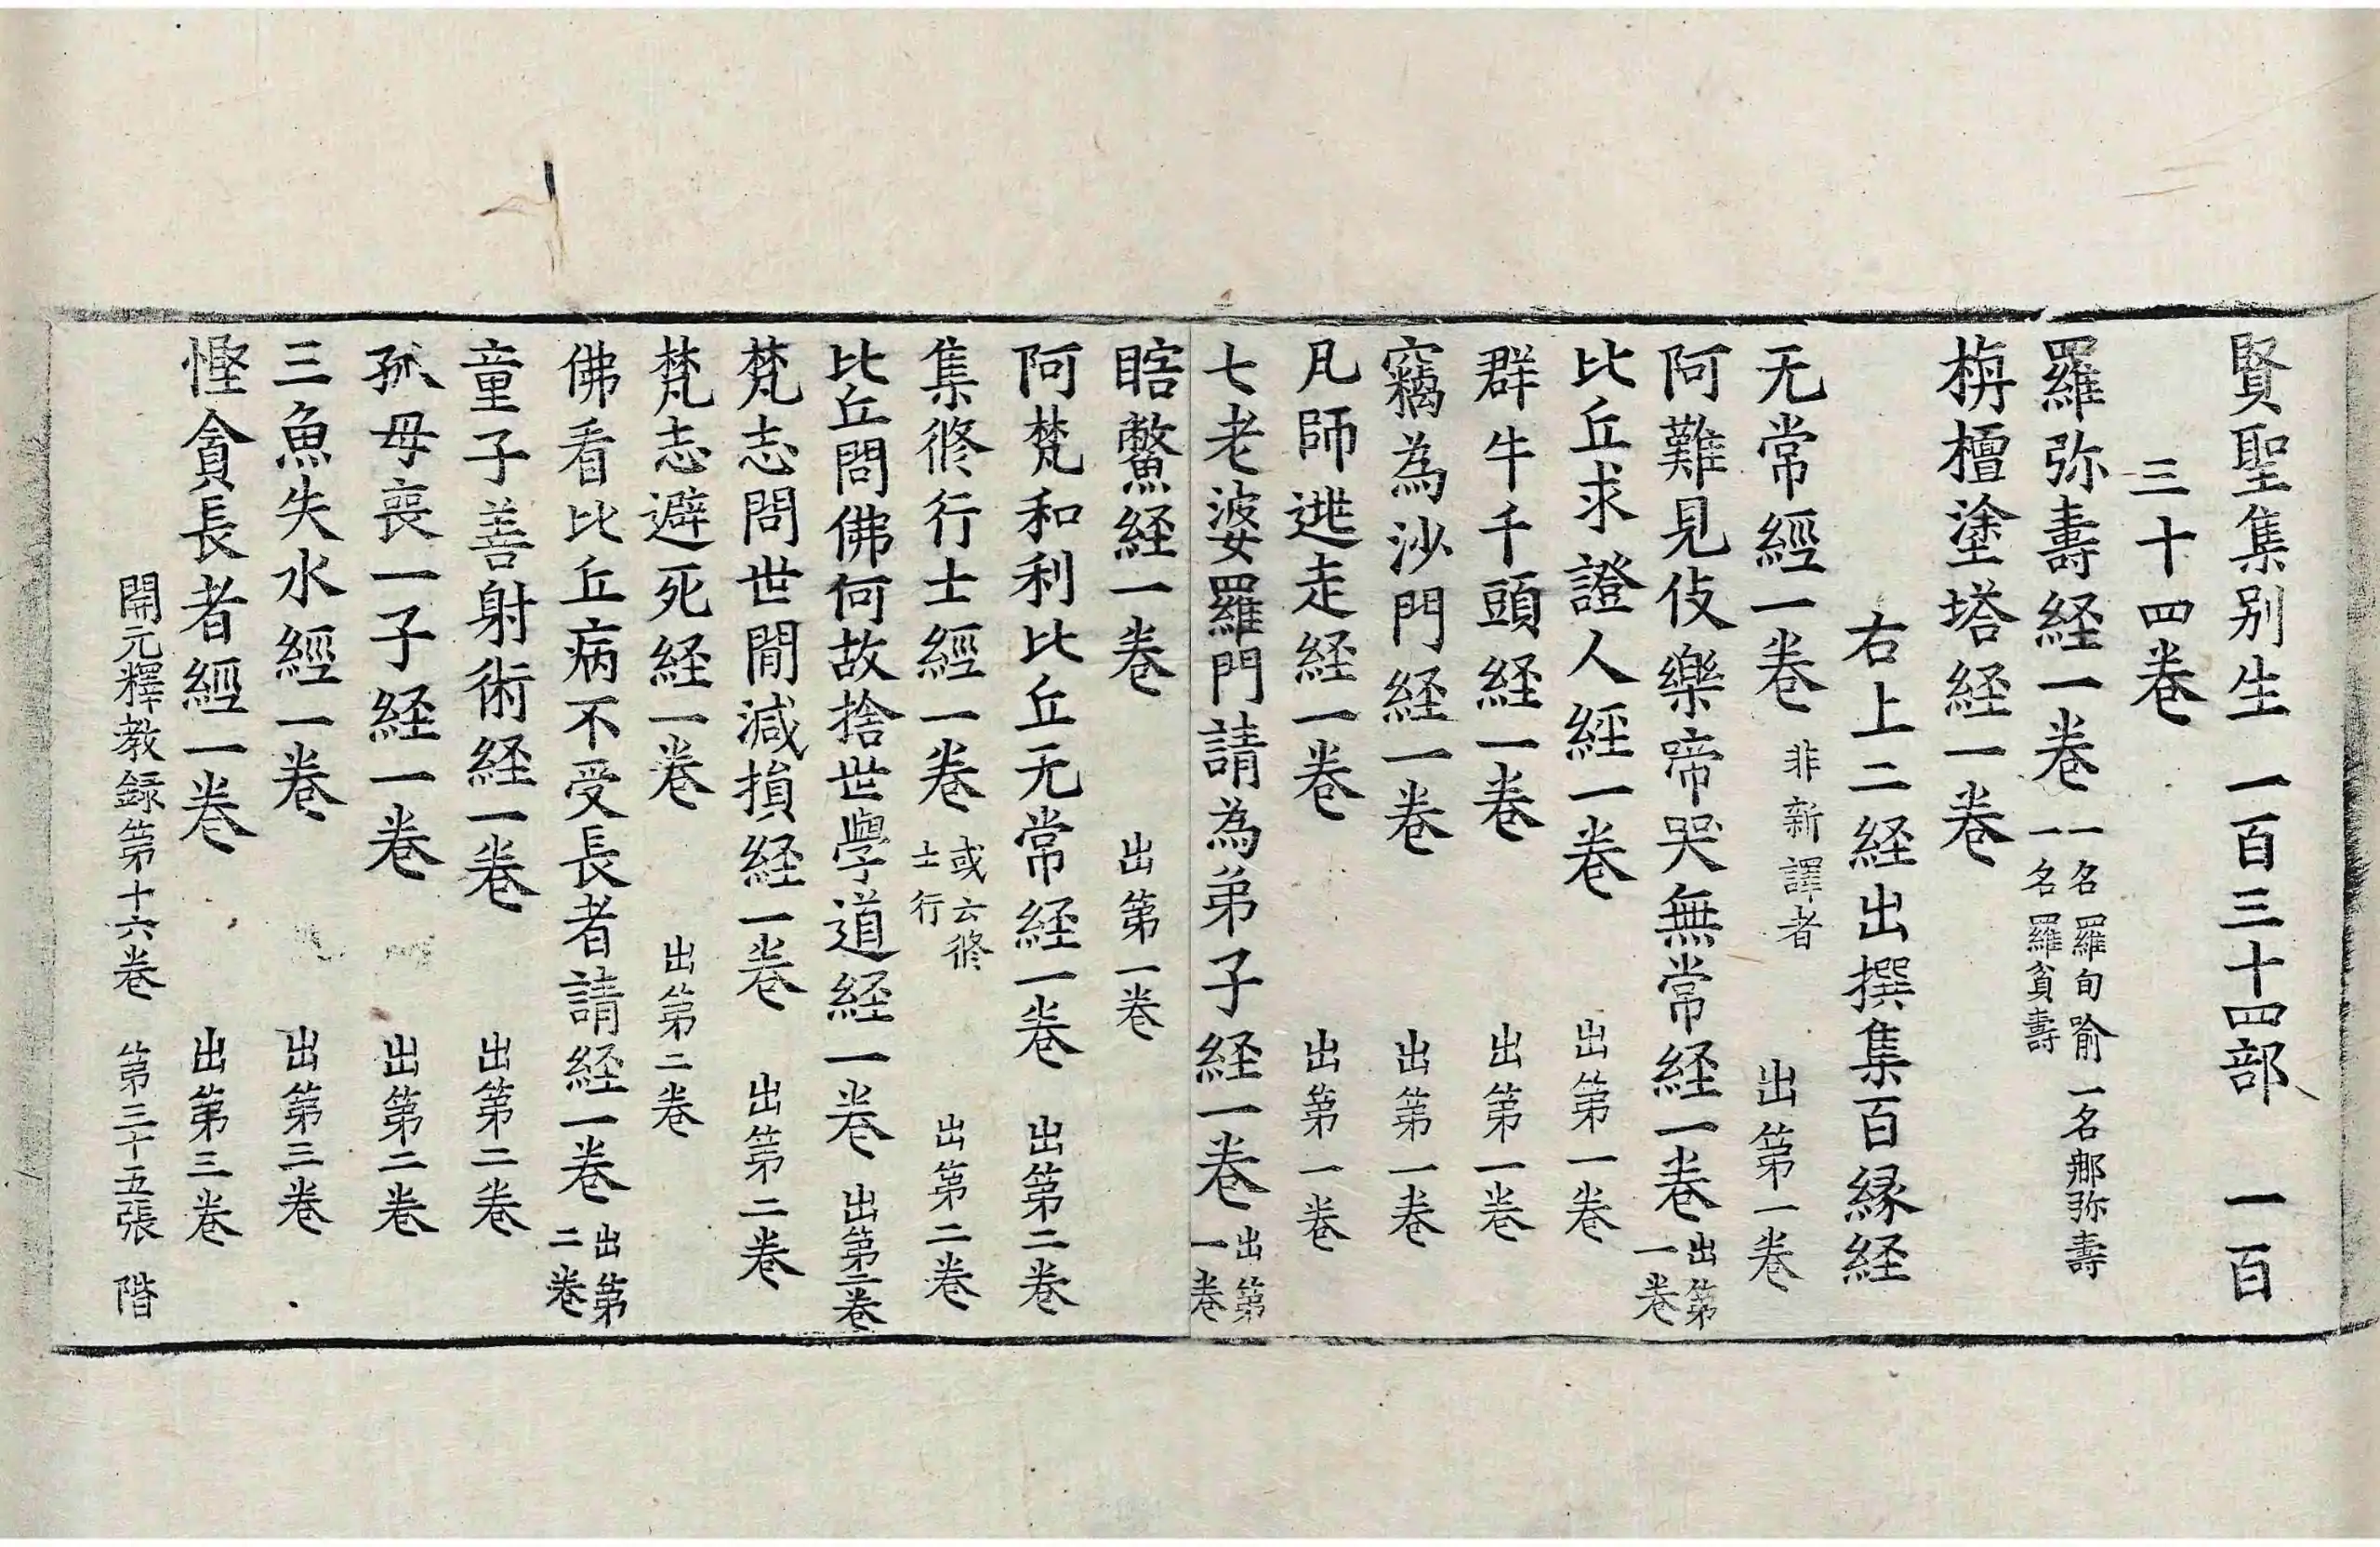 賢聖集別生一百三十四部 一百
三十四卷
羅弥壽経一卷 一名羅旬喻一名郍弥壽一名羅貧壽
栴檀塗塔経一卷
右上二経出撰集百縁経
无常經一卷 非新譯者 出第一卷
阿難見伎樂啼哭無常経一卷 出第一卷
比丘求證人經一卷 出第一卷
群牛千頭経一卷 出第一卷
竊為沙門経一卷 出第一卷
凡師逃走経一卷 出第一卷
七老婆羅門請為弟子経一卷 出第一卷
瞎鱉経一卷 出第一卷
阿梵和利比丘无常経一卷 出第二卷
集修行士經一卷 或云修士行 出第二卷
比丘問佛何故捨世學道経一卷 出第二卷
梵志問世間減損経一卷 出第二卷
梵志避死経一卷 出第二卷
佛看比丘病不受長者請経一卷 出第二卷
童子善射術経一卷 出第二卷
孤母喪一子経一卷 出第二卷
三魚失水經一卷 出第三卷
慳貪長者經一卷 出第三卷
開元釋教録第十六卷 第三十五張 階